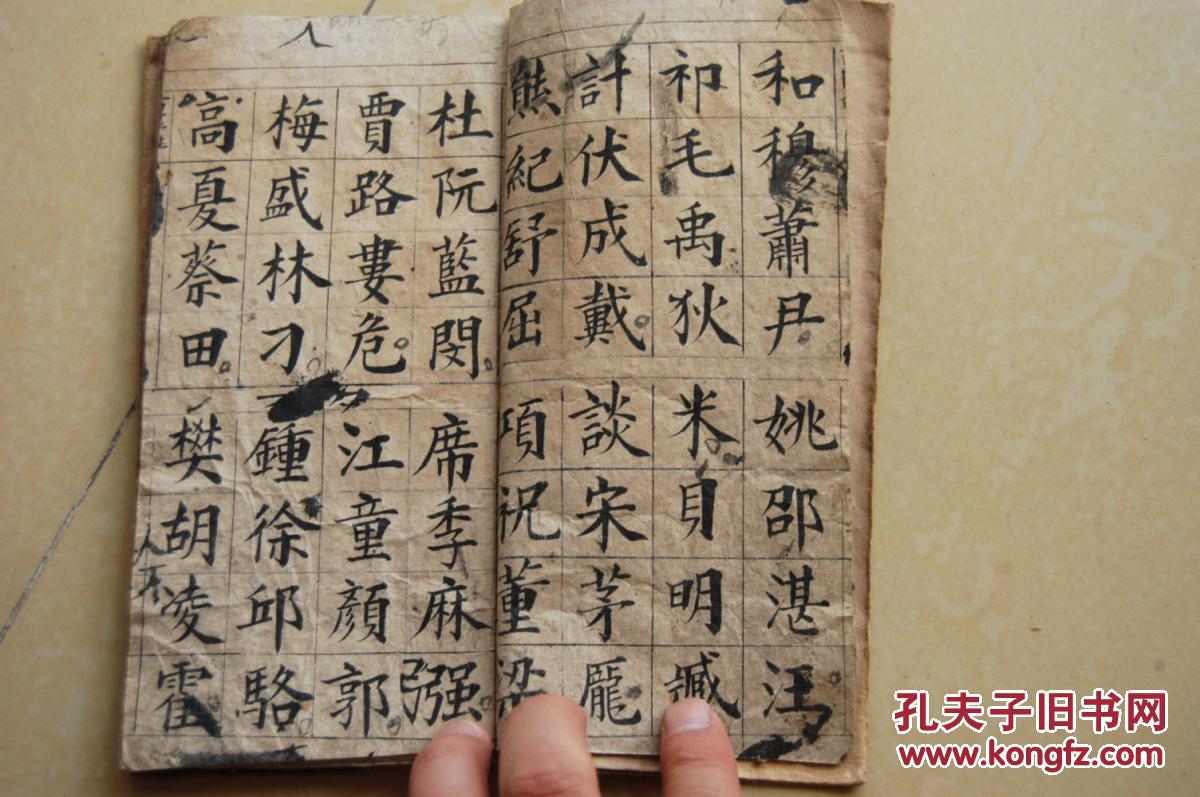 和穆蕭尹姚邵湛汪
祁毛禹狄米貝明臧
計伏成戴談宋茅龐
熊紀舒屈項祝董梁
杜阮藍閔席季麻强
賈路婁危江童顏郭
梅盛林刁鍾徐邱駱
高夏蔡田樊胡凌霍
孔夫子旧书网
www.kongfz.com